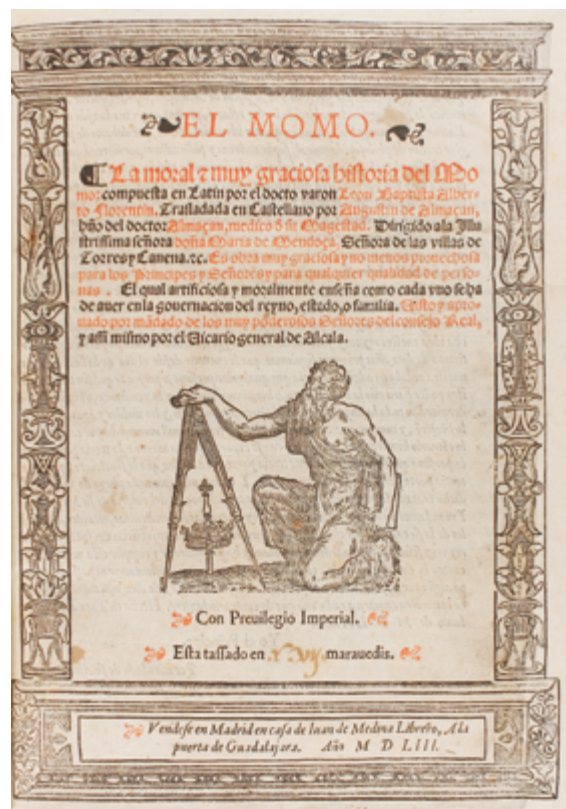 EL MOMO.
La moral ⁊ muy graciosa historia del Mo
mo: compuesta en Latin por el docto varon Leon Baptista Alber-
to florentin. Trasladada en Castellano por Augustin de Almaçan,
hijo del doctor Almaçan, medico d̄ su Magestad. Dirigido ala Illu
strissima señora doña Maria de Mendoça. Señora de las villas de
Torres y Canena.⁊c. Es obra muy graciosa y no menos prouechosa
para los Principes y Señores y para qualquier qualidad de perso-
nas. El qual artificiosa y moralmente enseña como cada vno se ha
de auer en la gouernacion del reyno, estado, o familia. Visto y apro-
uado por mãdado de los muy poderosos Señores del consejo Real,
y assi mismo por el Vicario general de Alcala.
Con Preuilegio Imperial.
Esta tassado en marauedis.
Vendese en Madrid en casa de Iuan de Medina Librero, A la
puerta de Guadalajara. Año M D LIII.